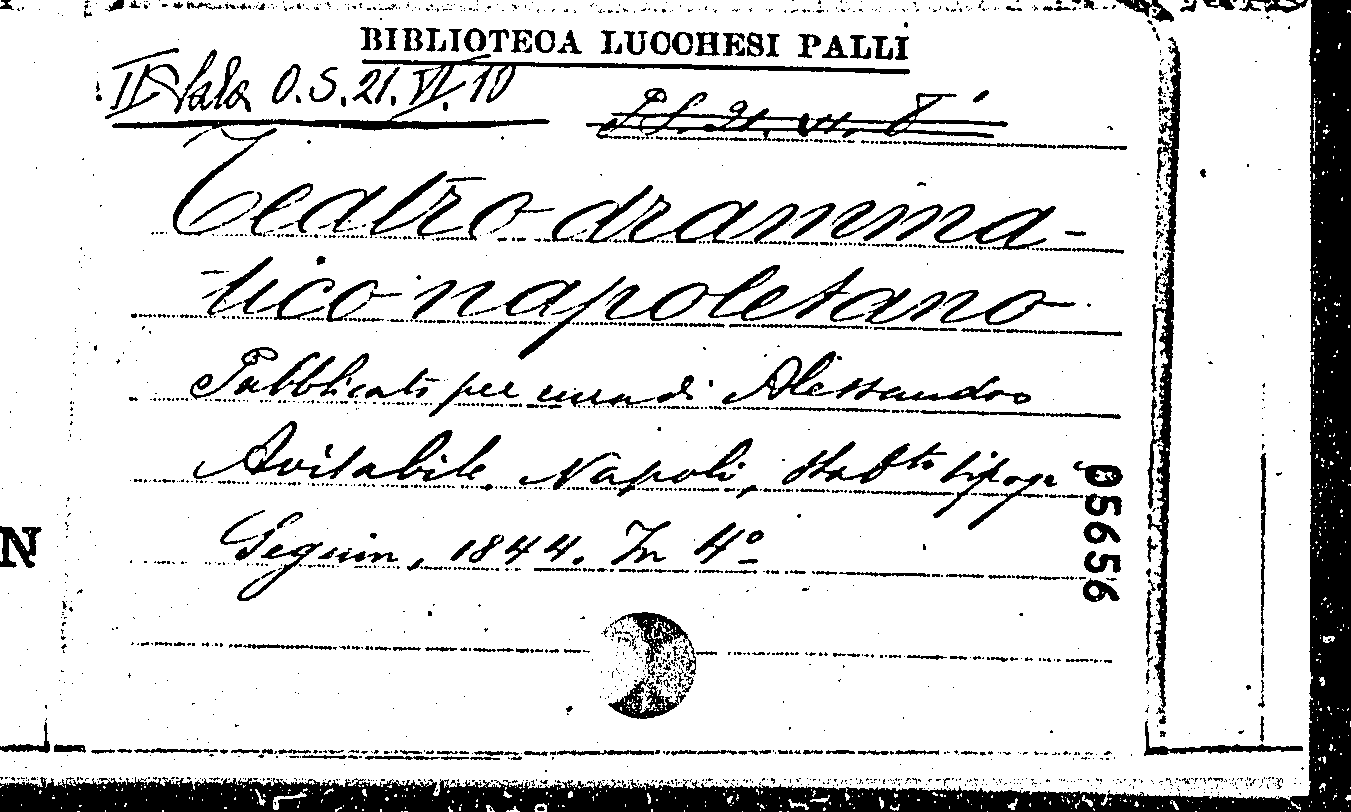 BIBLIOTECA LUCCHESI PALLI
II Sala O.S.21.VI.10
21. VI. 8
Teatro dramma-
tico napoletano
Pubblicato per cura di Alessandro
Avitabile. Napoli, Stab.to tipogr.
Seguin, 1844. In 4º
05656
N